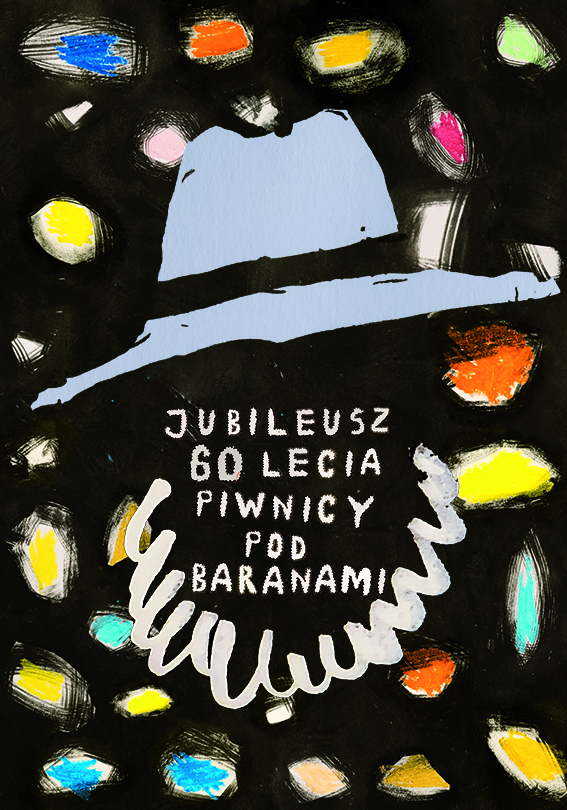 JUBILEUSZ
60 LECIA
PIWNICY
POD
BARANAMI